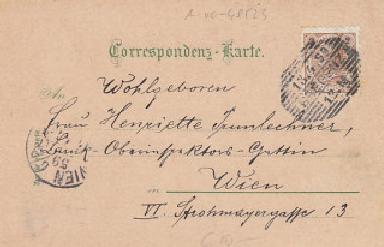 Correspondenz-Karte.
An
Wohlgeboren
Frau Henriette
Bank-Oberinspektors-Gattin
in Wien
VI. Strohmayergasse 13
WIEN